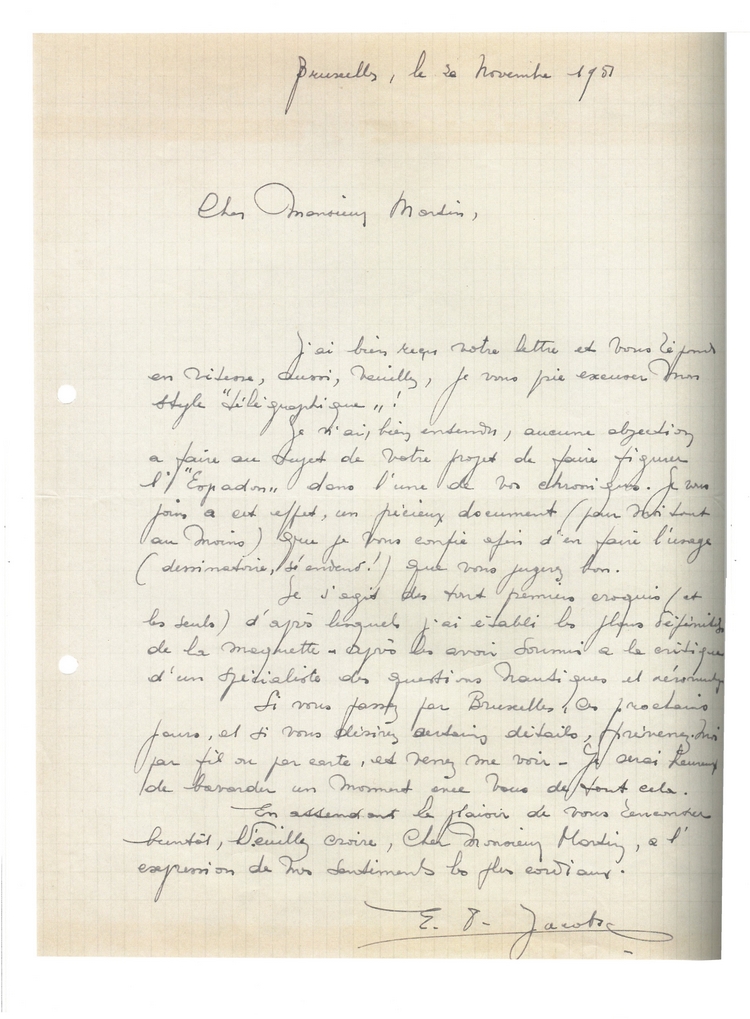 Bruxelles, le 20 Novembre 1951
Cher Monsieur Martin,
J'ai bien reçu votre lettre et vous réponds
en vitesse, aussi, veuillez, je vous prie excuser mon
style "télégraphique" !
Je n'ai, bien entendu, aucune objection
a faire au sujet de votre projet de faire figurer
l'"Espadon" dans l'une de vos chroniques. Je vous
joins a cet effet, un précieux document (pour moi tout
au moins) que je vous confie afin d'en faire l'usage
(dessinatoire, s'entend!) que vous jugerez bon.
Il s'agit des tout premiers croquis (et
les seuls) d'après lesquels j'ai établi les plans définitifs
de la maquette - après les avoir soumis a la critique
d'un spécialiste des questions nautiques et aéronautiq
Si vous passez par Bruxelles, ces prochains
jours, et si vous désirez certains détails, prévenez-moi
par fil ou par carte, et venez me voir - Je serai heureux
de bavarder un moment avec vous de tout cela.
En attendant le plaisir de vous rencontrer
bientôt, Veuillez croire, Cher Monsieur Martin, a l'
expression de mes sentiments les plus cordiaux.
E. P. Jacobs